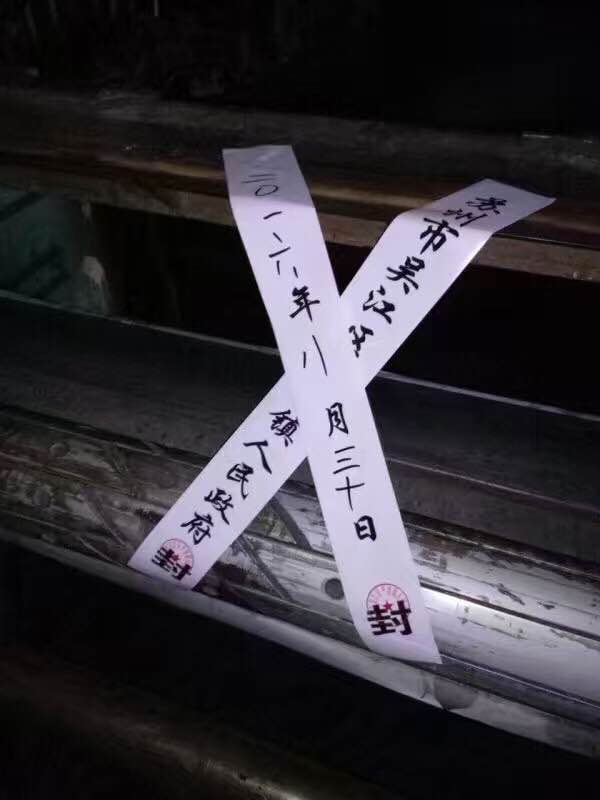 二〇一六年八月三十日
封
苏州市吴江区
镇人民政府
封